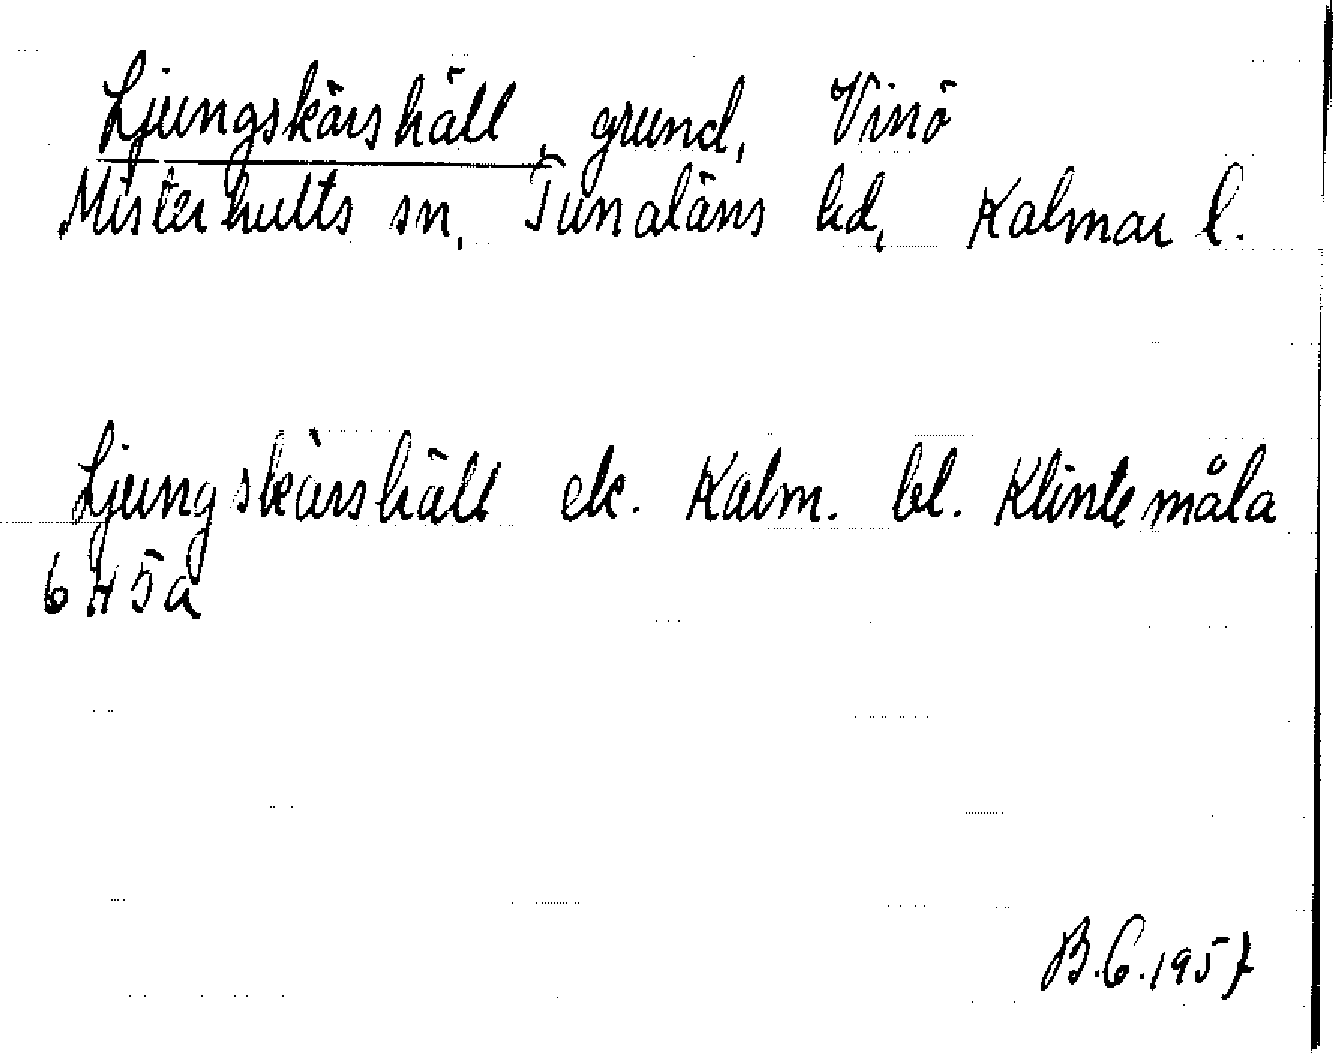 Ljungskärshäll, grund, Vinö
Misterhults sn, Tunaläns hd, Kalmar l.
Ljungskärshäll ek. Kalm. bl. Klintemåla
6 H 5 a
B.G. 1957